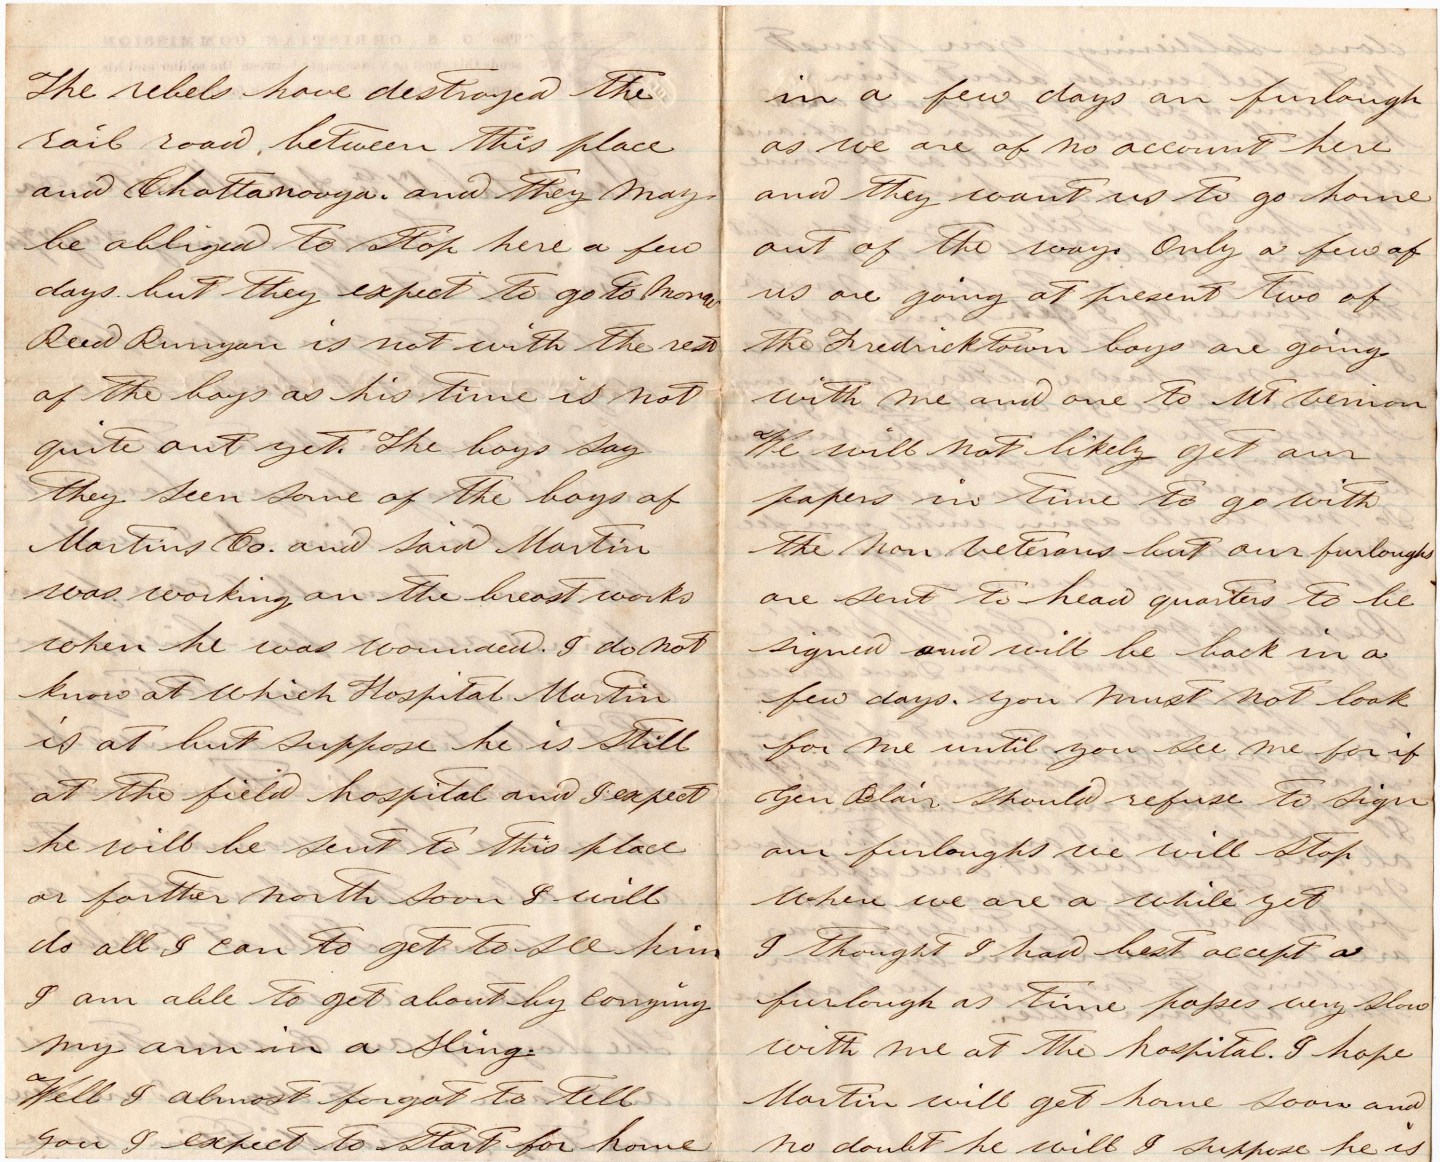 The rebels have destroyed the
rail road, between this place
and Chattanooga. and they may
be obliged to stop here a few
days. but they expect to go to
Reed Runyan is not with the rest
of the boys as his time is not
quite out yet. The boys say
they seen some of the boys of
Martins Co. and said Martin
was working on the breast works
when he was wounded. I do not
know at which Hospital Martin
is at but suppose he is still
at the field hospital and I expect
he will be sent to this place
or forther north soon I will
do all I can to get to see him
I am able to get about by carrying
my arm in a sling.
Well I almost forgot to tell
you I expect to start for home
in a few days on furlough
as we are of no account here
and they want us to go home
out of the way. Only a few of
us are going at present two of
the Fredricktown boys are going
with me and one to Mt Vernon
We will not likely get our
papers in time to go with
the non veterans but our furloughs
are sent to head quarters to be
signed and will be back in a
few days. you must not look
for me until you see me for if
Gen Blair should refuse to sign
our furloughs we will stop
where we are a while yet
I thought I had best accept a
furlough as time passes very slow
with me at the hospital. I hope
Martin will get home soon and
no doubt he will I suppose he is